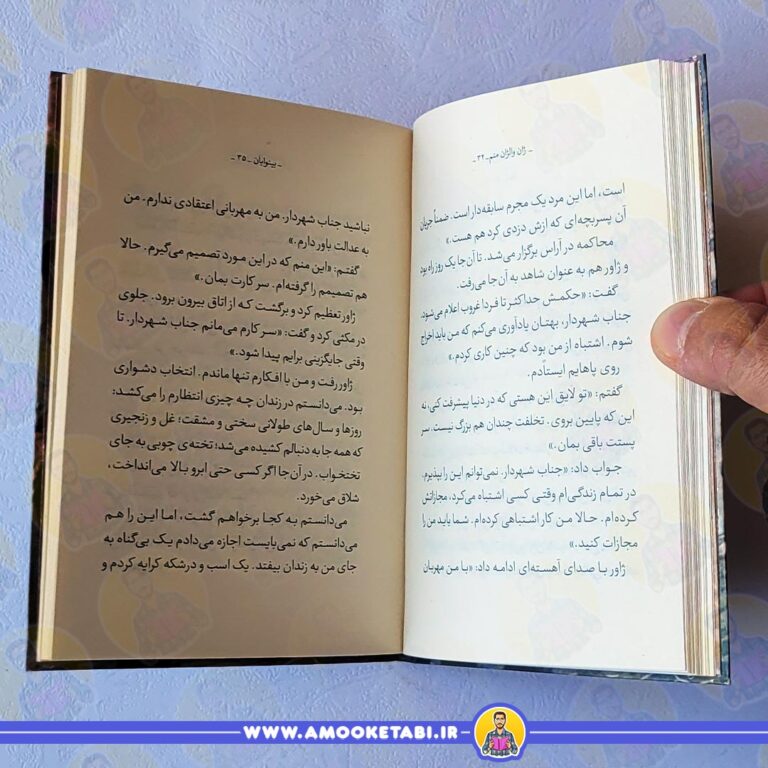 ـ ژان والژان منم ـ ۳۴ ـ
است، اما این مرد یک مجرم سابقه‌دار است. ضمناً جریان
آن پسربچه‌ای که ازش دزدی کرد هم هست.»
محاکمه در آراس برگزار می‌شد. تا آن‌جا یک روز راه بود
و ژاور هم به عنوان شاهد به آن‌جا می‌رفت.
گفت: «حکمش حداکثر تا فردا غروب اعلام می‌شود.
جناب شهردار، بهتان یادآوری می‌کنم که من باید اخراج
شوم. اشتباه از من بود که چنین کاری کردم.»
روی پاهایم ایستادم.
گفتم: «تو لایق این هستی که در دنیا پیشرفت کنی، نه
این که پایین بروی. تخلفت چندان هم بزرگ نیست. سر
پستت باقی بمان.»
جواب داد: «جناب شهردار، نمی‌توانم این را بپذیرم.
در تمام زندگی‌ام وقتی کسی اشتباه می‌کرد، مجازاتش
کرده‌ام. حالا من کار اشتباهی کرده‌ام. شما باید من را
مجازات کنید.»
ژاور با صدای آهسته‌ای ادامه داد: «با من مهربان
ـ بینوایان ـ ۳۵ ـ
نباشید جناب شهردار. من به مهربانی اعتقادی ندارم. من
به عدالت باور دارم.»
گفتم: «این منم که در این مورد تصمیم می‌گیرم. حالا
هم تصمیمم را گرفته‌ام. سر کارت بمان.»
ژاور تعظیم کرد و برگشت که از اتاق بیرون برود. جلوی
در مکثی کرد و گفت: «سر کارم می‌مانم جناب شهردار. تا
وقتی جایگزینی برایم پیدا شود.»
ژاور رفت و من با افکارم تنها ماندم. انتخاب دشواری
بود. می‌دانستم در زندان چه چیزی انتظارم را می‌کشد:
روزها و سال‌های طولانی سختی و مشقت؛ غل و زنجیری
که همه جا به دنبالم کشیده می‌شد؛ تخته‌ی چوبی به جای
تختخواب. در آن‌جا اگر کسی حتی ابرو بالا می‌انداخت،
شلاق می‌خورد.
می‌دانستم به کجا برخواهم گشت، اما این را هم
می‌دانستم که نمی‌بایست اجازه می‌دادم یک بی‌گناه به
جای من به زندان بیفتد. یک اسب و درشکه کرایه کردم و
WWW.AMOOKETABI.IR